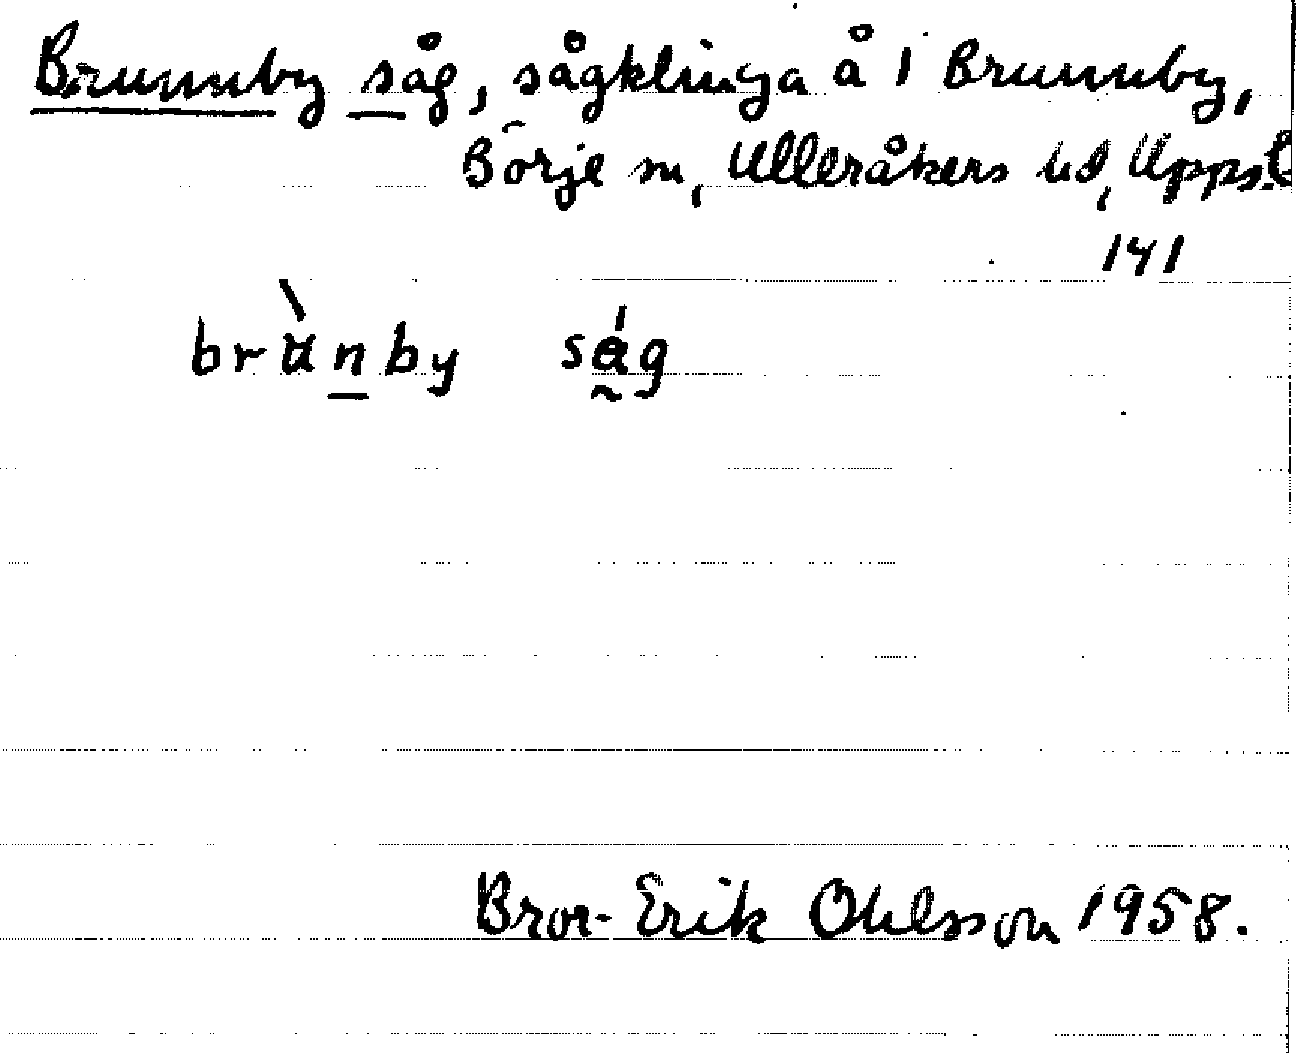 Brunnby såg, sågklinga å 1 Brunnby,
Börje sn, Ulleråkers hd, Upps. l
141
brùnby ság
Bror-Erik Ohlsson 1958.